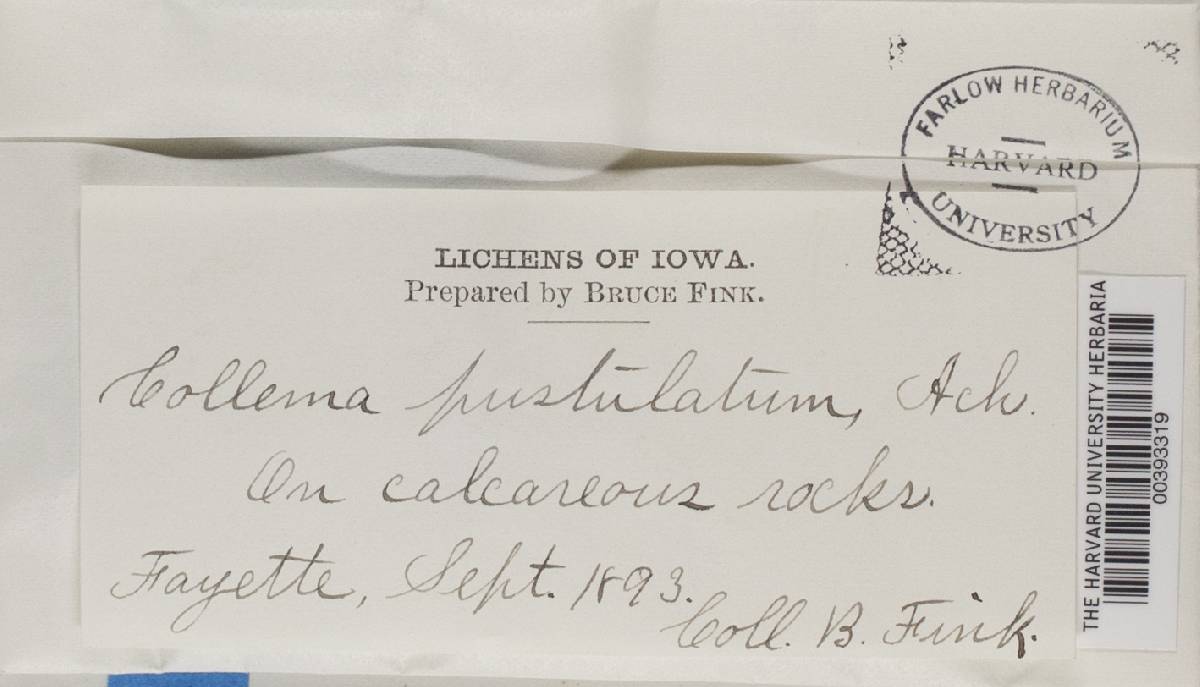 FARLOW HERBARIUM
HARVARD
UNIVERSITY
LICHENS OF IOWA.
Prepared by BRUCE FINK.
Collema pustulatum, Ach.
On calcareous rocks.
Fayette, Sept. 1893.
Coll. B. Fink.
THE HARVARD UNIVERSITY HERBARIA
00393319